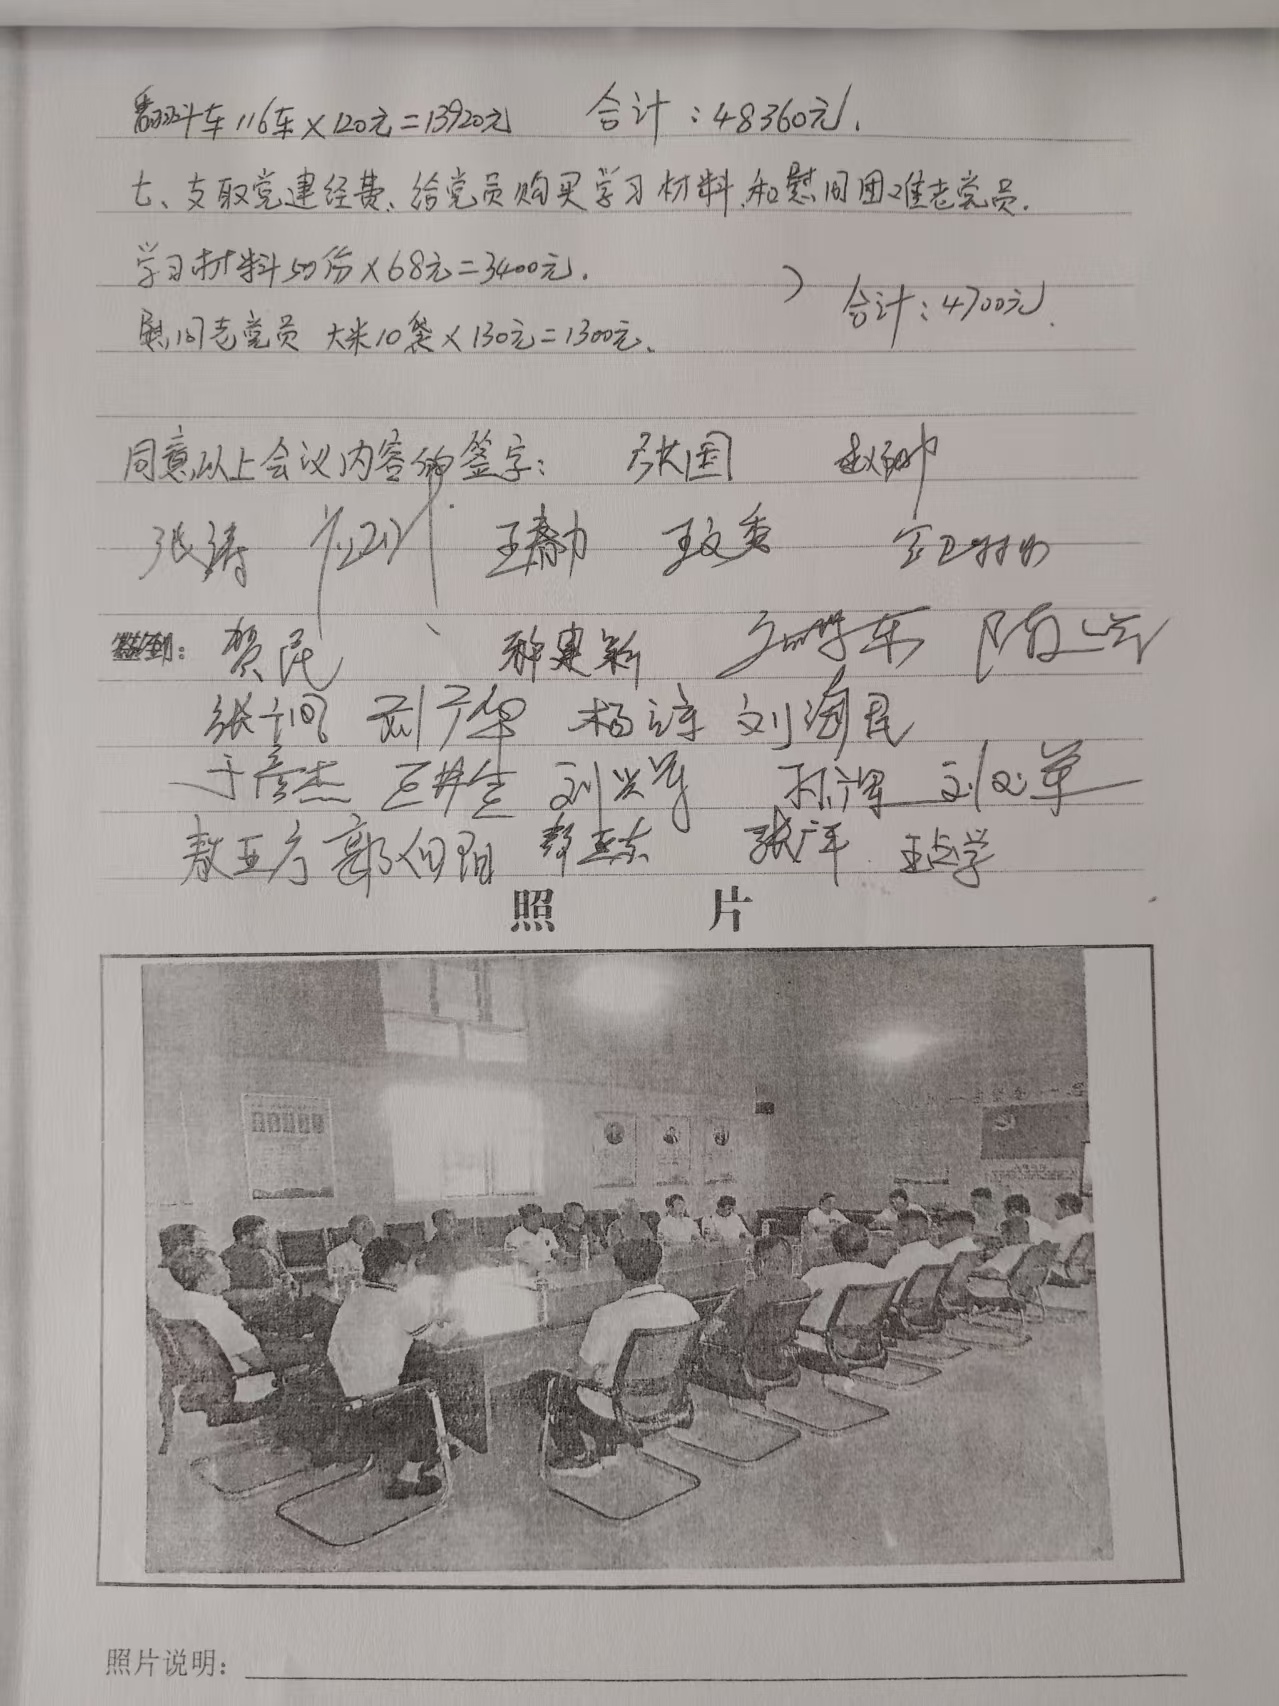 翻斗车116车×120元=13920元 合计:48360元.
七、支取党建经费、给党员购买学习材料、和慰问困难老党员.
学习材料50份×68元=3400元.
合计:4700元.
慰问老党员 大米10袋×130元=1300元、
同意以上会议内容的签字: 张国
张涛 王春力 王文香
签到: 贺民 郭建新
张广 刘广华 杨 刘海民
于彦杰 王井生 刘兴军 孙辉 刘文军
敖亚方 郭向阳 张广军 王占学
照 片
照片说明: